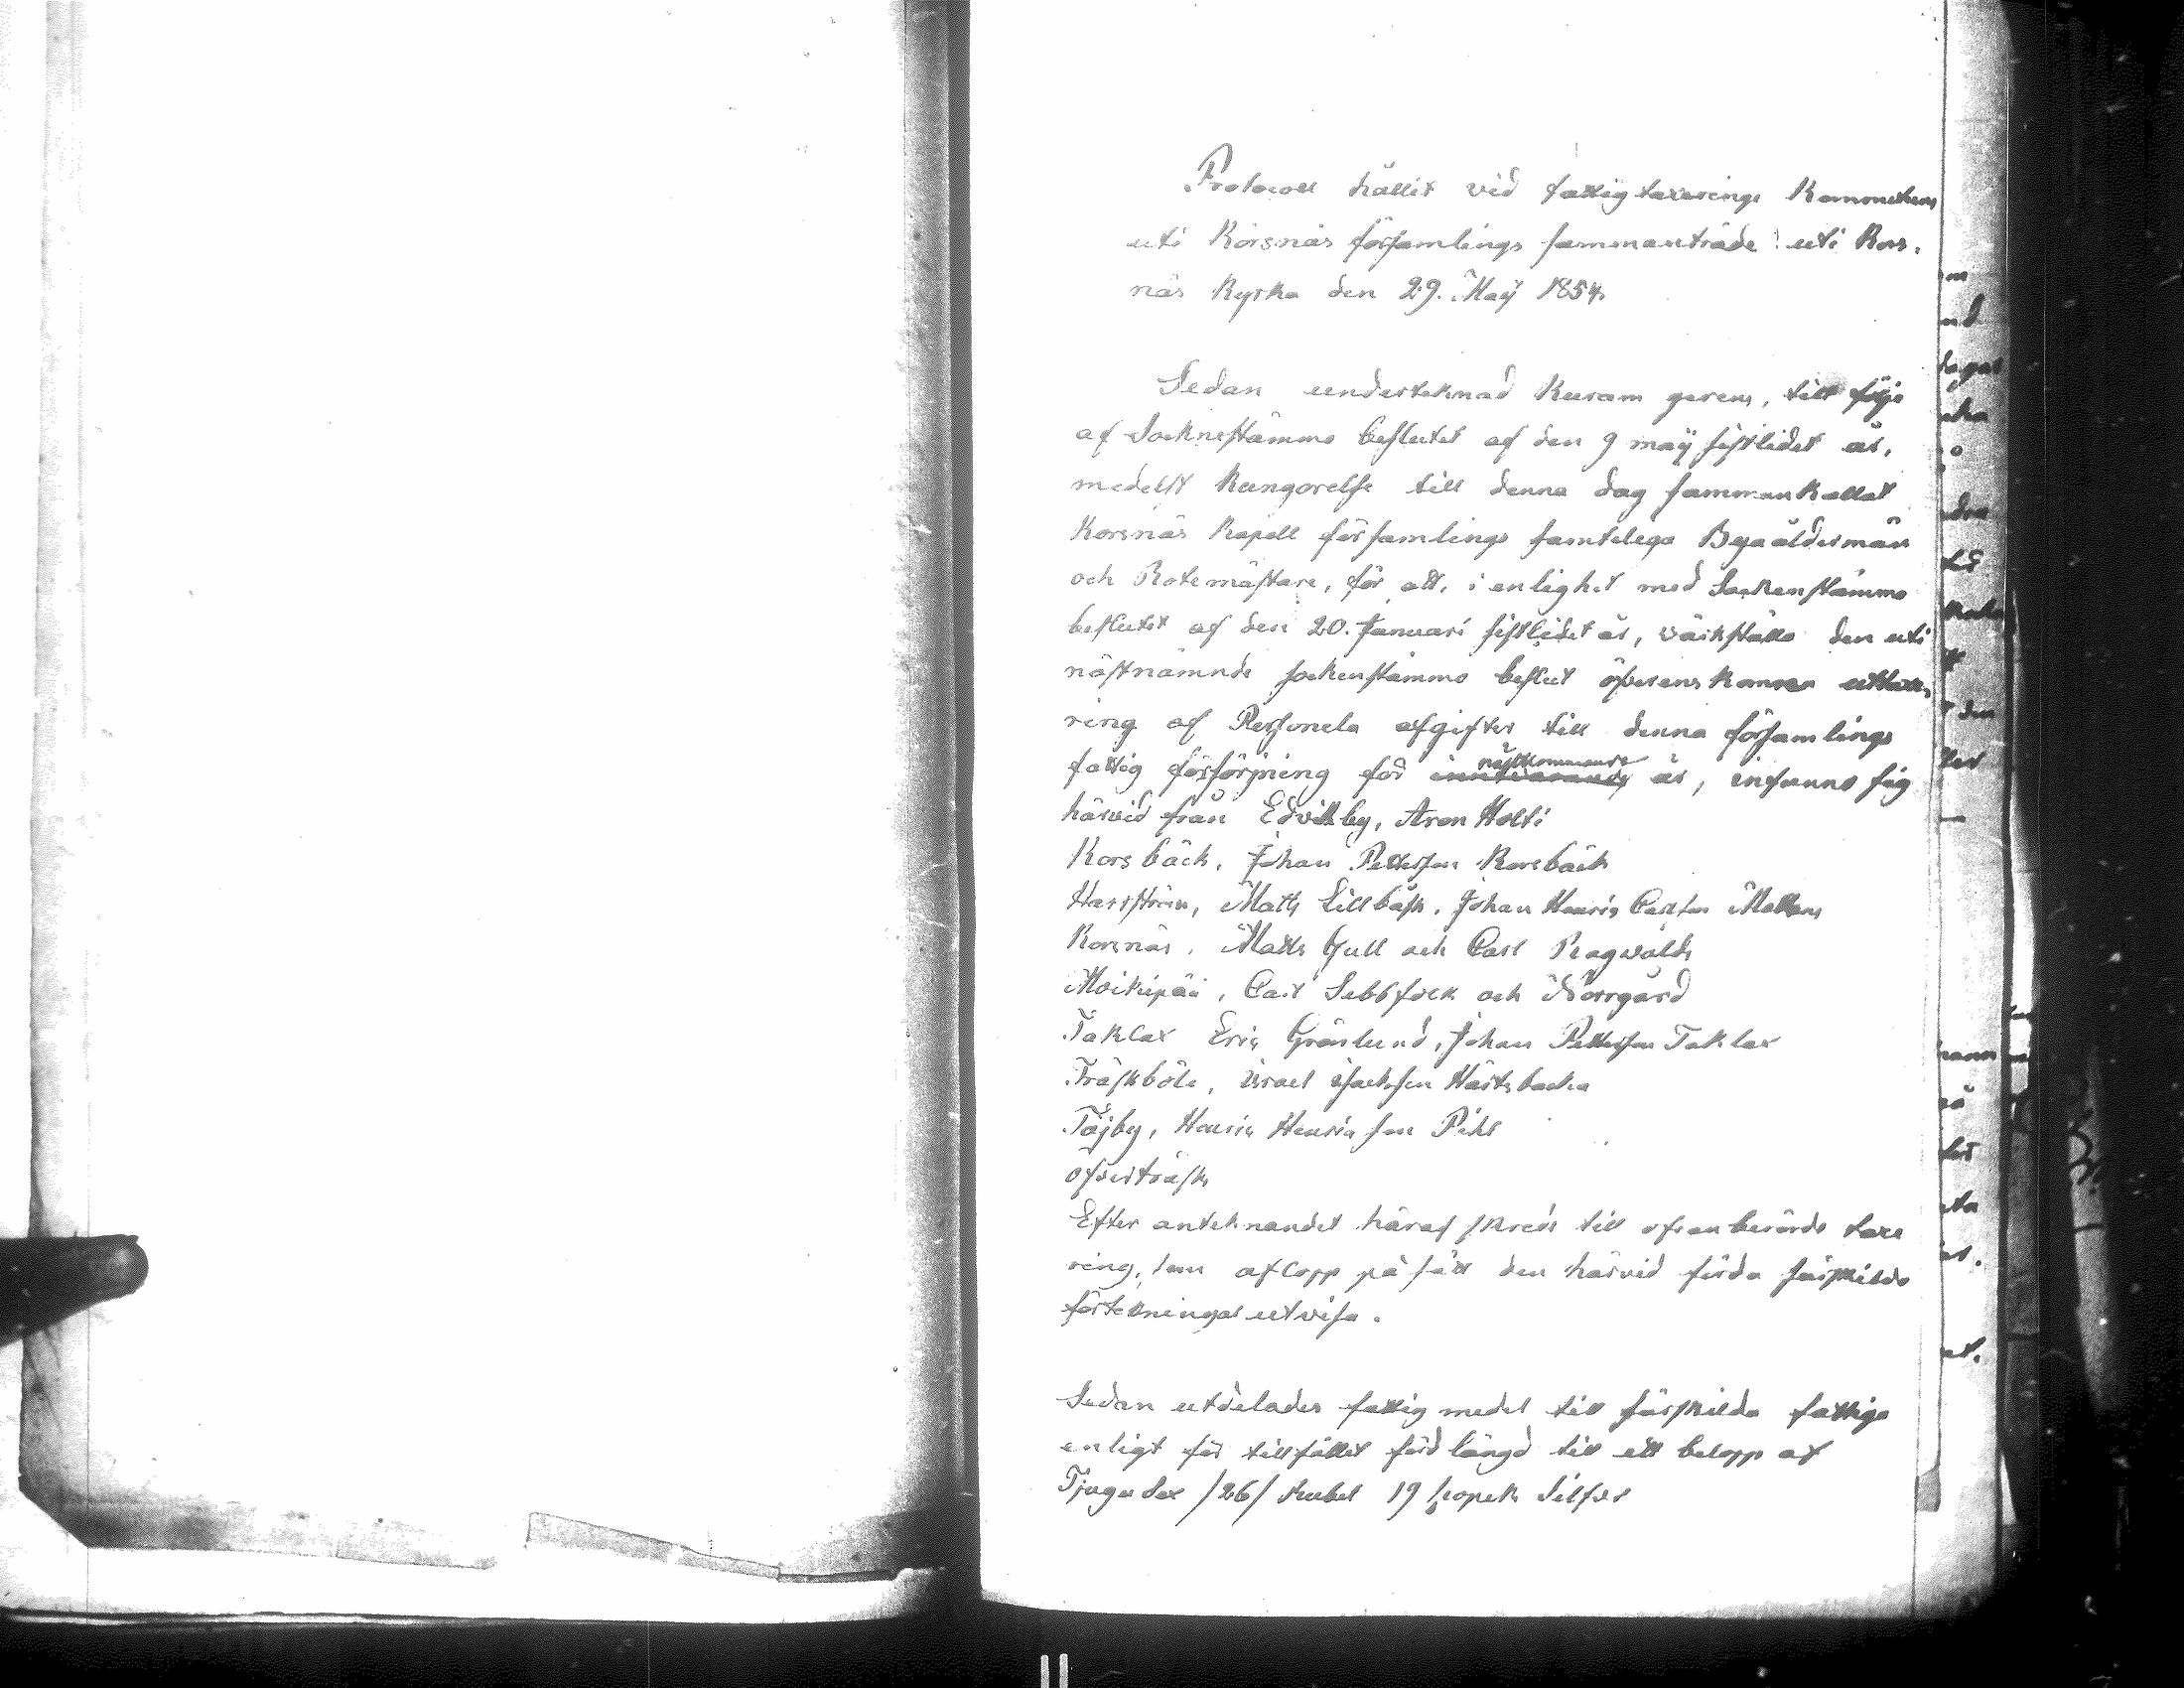 Protocoll hållit vid fattig taxerings Kommitteens
uti Korsnäs församlings sammanträde uti Kors.
näs Kyrka den 29. Maÿ 1854.
Sedan underteknad Kuram gerens, till följe
af Socknestämmo beslutet af den 9 maÿ sistlidet år,
medelst Kungorelse till denna dag sammankallat
Korsnäs Kapell församlings samtelega Byaåldermän
och Rotemästare, för att, i enlighet med Sockenstämmo
beslutet af den 20. Januari sistlidet år, värkställa den uti
nästnämnde sockenstämmo beslut öfverenskomna uttaxe,
ring af Personela afgifter till denna församlings
fattig försörjning för nästkommande år, infunno sig
härvid från Edvikby, Aron Holti
Korsbäck, Johan Pettersson Korsbäck
Harrström, Matts Lillbåsk, Johan Henric Carlsson Mattans
Korsnäs, Matts Gull och Carl Ragwalds
Moikipää, Carl Sebbfolk och Norrgård
Taklax Eric Grönlund, Johan Pettersson Taklax
Träskböle, Israel Isacksson Hästbacka
Töjby, Henric Henricsson Pihl
öfverträsk
Efter anteknandet häraf skreds till ofvanberörde taxe
ring, som aflopp på sätt den härvid förda särskilda
förtekningar utvisa.
Sedan utdelades fattig medel till särskilda fattiga
enligt för tillfället förd längd till ett belopp af
Tjugu sex /26/ rubel 19 kopek Silfver